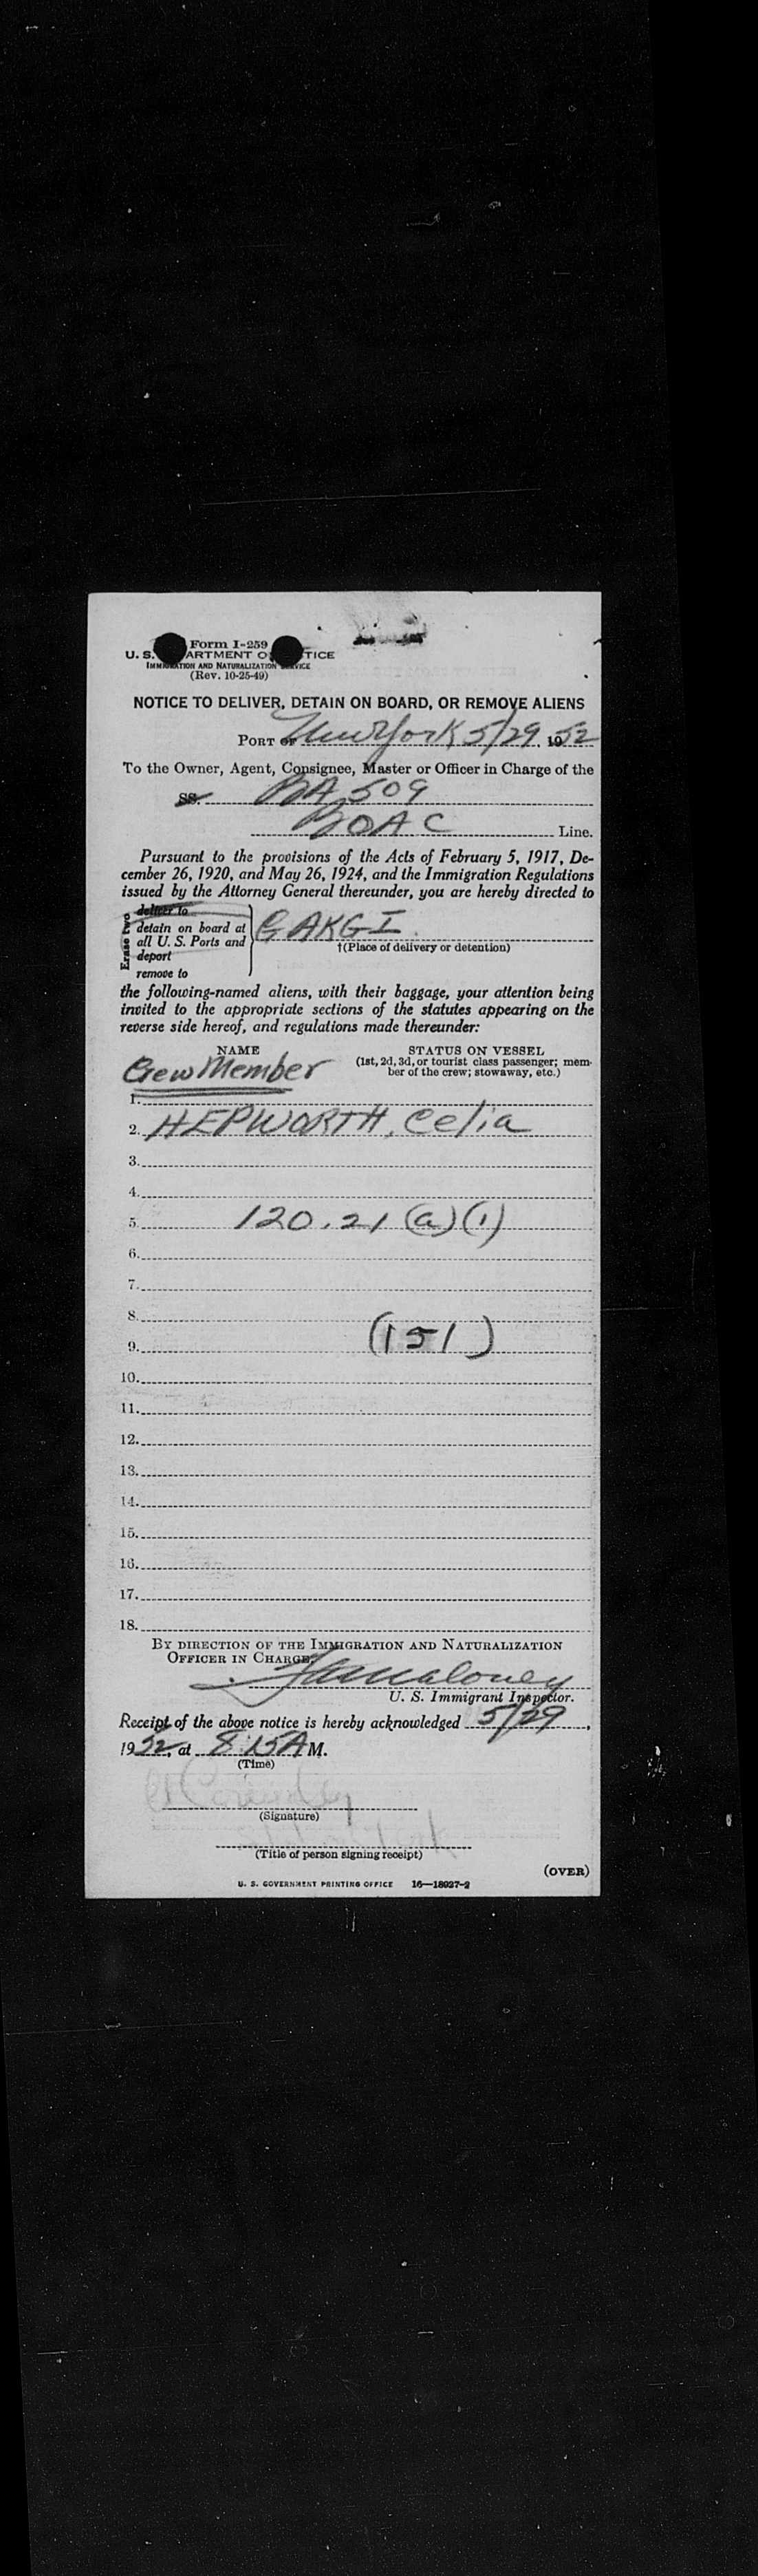 Form I-259
U. S. DEPARTMENT OF JUSTICE
IMMIGRATION AND NATURALIZATION SERVICE
(Rev. 10-25-49)
NOTICE TO DELIVER, DETAIN ON BOARD, OR REMOVE ALIENS
PORT OF New York 5/29, 1952
To the Owner, Agent, Consignee, Master or Officer in Charge of the
SS. BA 509
BOAC Line.
Pursuant to the provisions of the Acts of February 5, 1917, De-
cember 26, 1920, and May 26, 1924, and the Immigration Regulations
issued by the Attorney General thereunder, you are hereby directed to
Erase two
deliver to
detain on board at
all U. S. Ports and
deport
remove to
GAKGI
†(Place of delivery or detention)
the following-named aliens, with their baggage, your attention being
invited to the appropriate sections of the statutes appearing on the
reverse side hereof, and regulations made thereunder:
NAME STATUS ON VESSEL
(1st, 2d, 3d, or tourist class passenger; mem-
ber of the crew; stowaway, etc.)
Crew Member
1.
2. HEPWORTH, Celia
3.
4.
5. 120.21 (a)(1)
6.
7.
8.
9. (151)
10.
11.
12.
13.
14.
15.
16.
17.
18.
BY DIRECTION OF THE IMMIGRATION AND NATURALIZATION
OFFICER IN CHARGE.
Maloney
U. S. Immigrant Inspector.
Receipt of the above notice is hereby acknowledged 5/29,
1952, at 8:15 A M.
(Time)
(Signature)
(Title of person signing receipt)
(OVER)
U. S. GOVERNMENT PRINTING OFFICE 16—18037-2